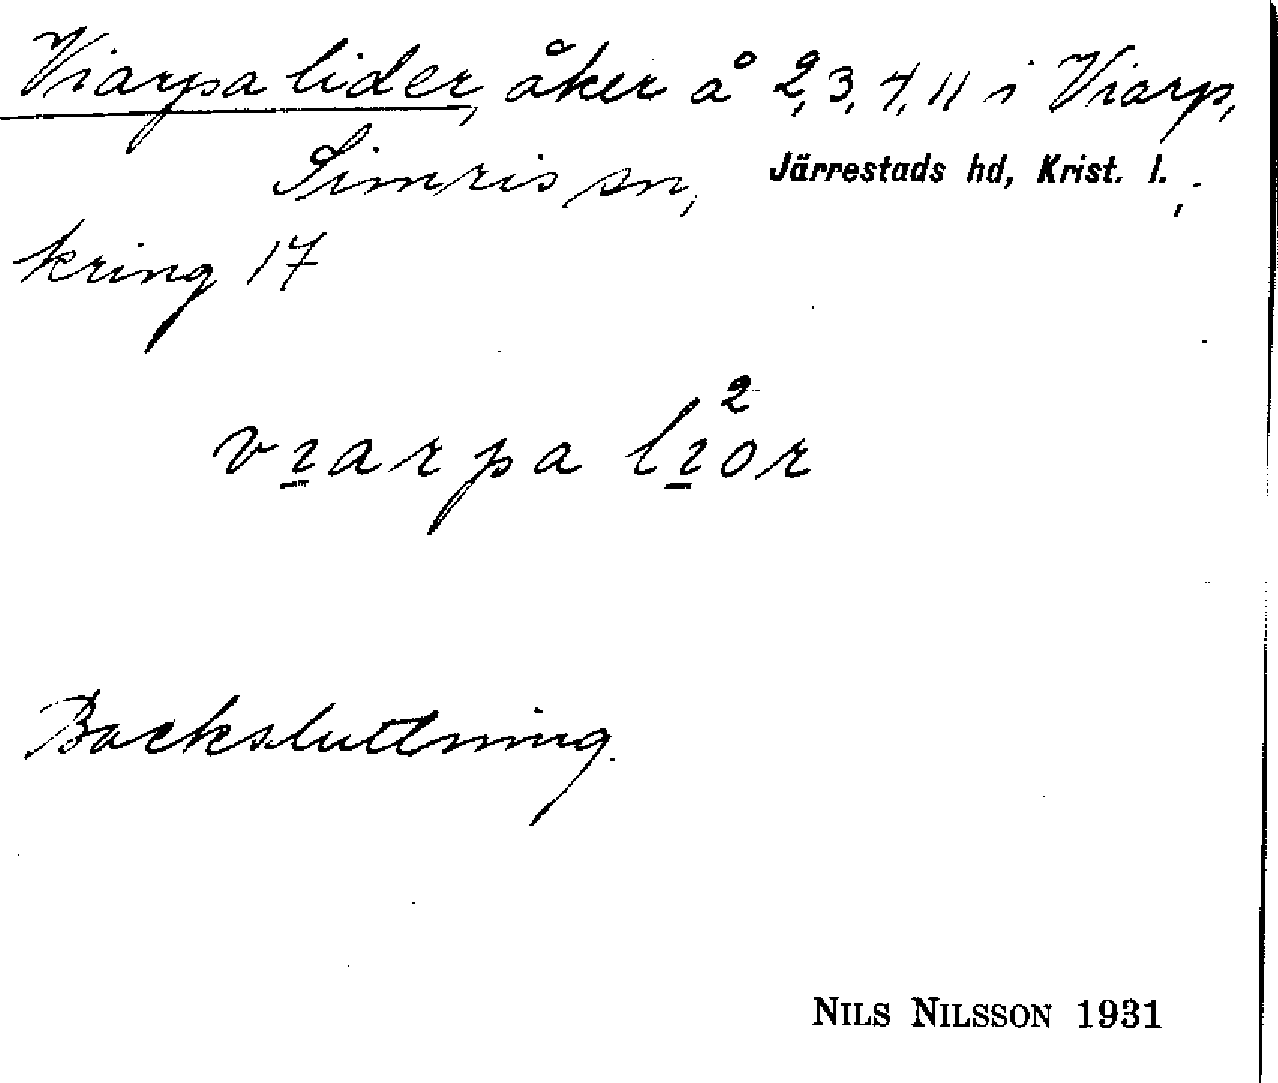 Viarpa lider, åker å 2, 3, 4, 11 i Viarp,
Simris sn, Järrestads hd, Krist. l.,
kring 17
vıarpa lı²or
Backsluttning.
NILS NILSSON 1931